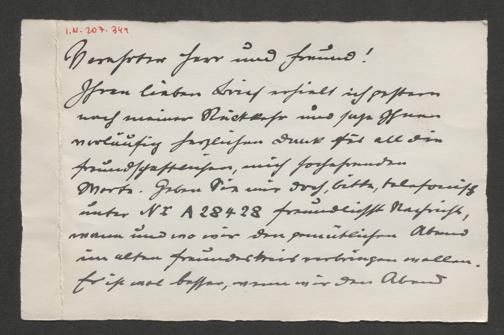 I.N. 207.349
Verehrter Herr und Freund!
Ihren lieben Brief erhielt ich gestern
nach meiner Rückkehr und sage Ihnen
vorläufig herzlichen Dank für all die
freundschaftlichen, mich hochehrenden
Worte. Geben Sie mir doch, bitte, telefonisch
unter Nr A 28 4 28 freundlichst Nachricht,
wann und wo wir den gemütlichen Abend
im alten Freundeskreis verbringen wollen.
Es ist wol besser, wenn wir den Abend